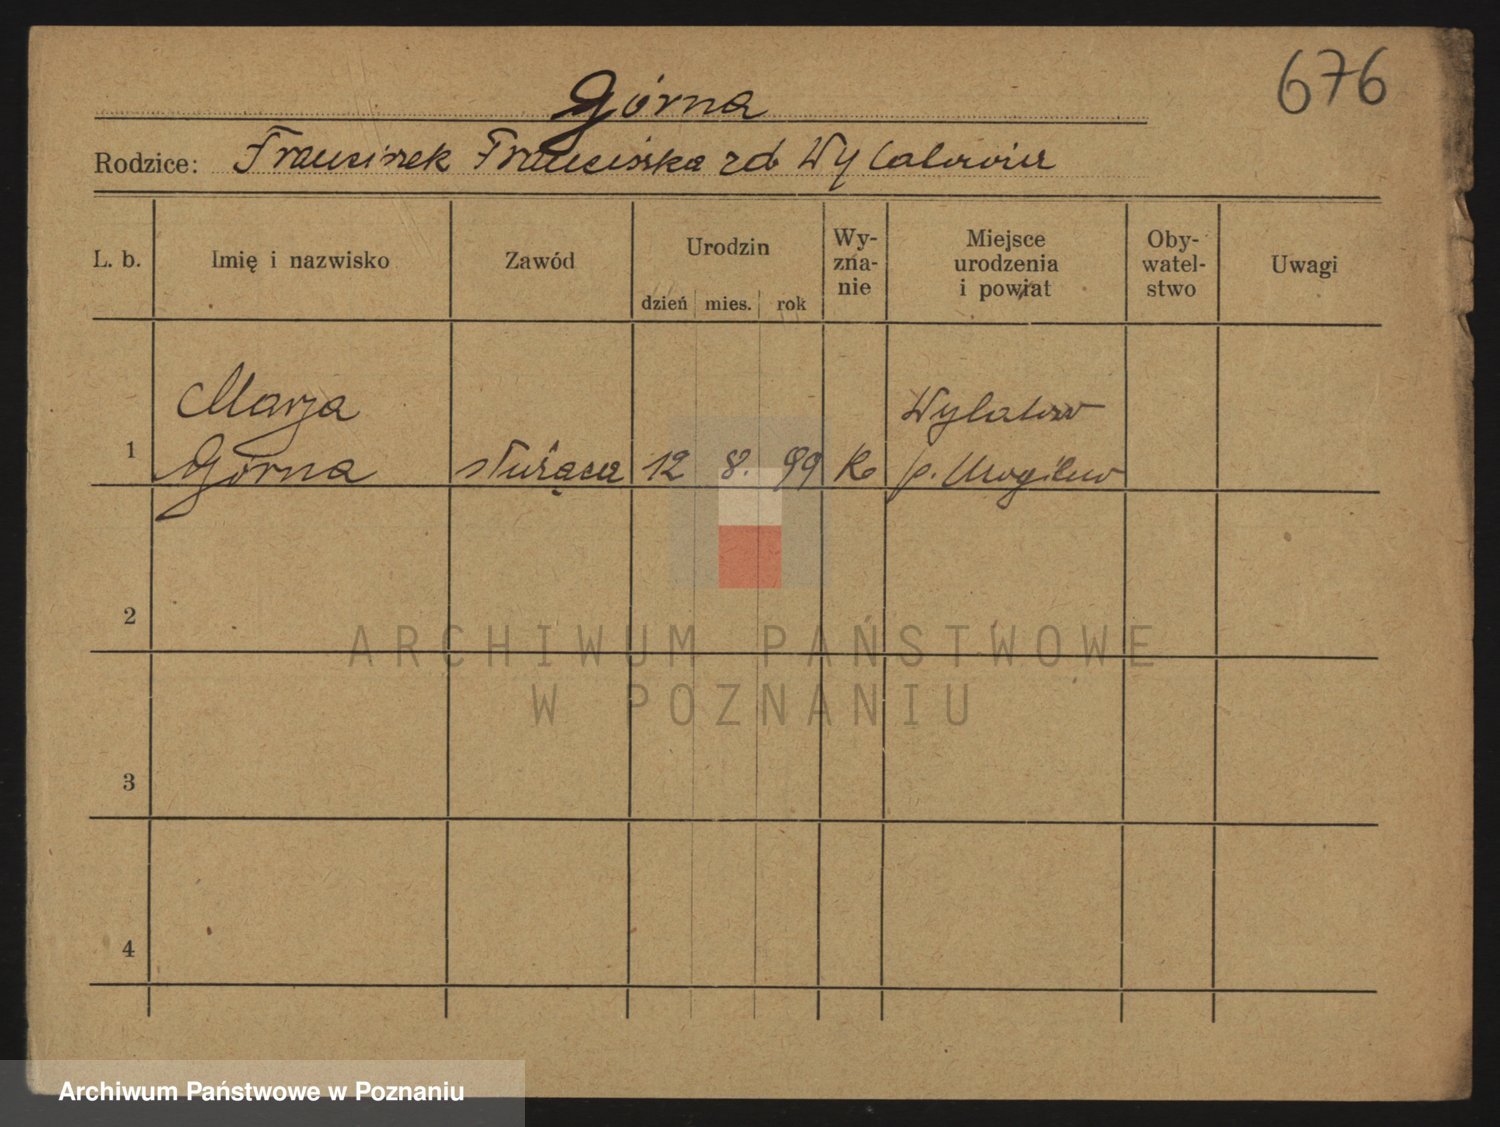 676
Górna
Rodzice: Franciszek Franciszka zd
L. b. Imię i nazwisko Zawód Urodzin dzień mies. rok Wy-znanie Miejsce urodzenia i powiat Oby-watel-stwo Uwagi
Marja Wylatowo
1 Górna służąca 12 8. 99 K p. Mogilno
2
ARCHIWUM PAŃSTWOWE
W POZNANIU
3
4
Archiwum Państwowe w Poznaniu